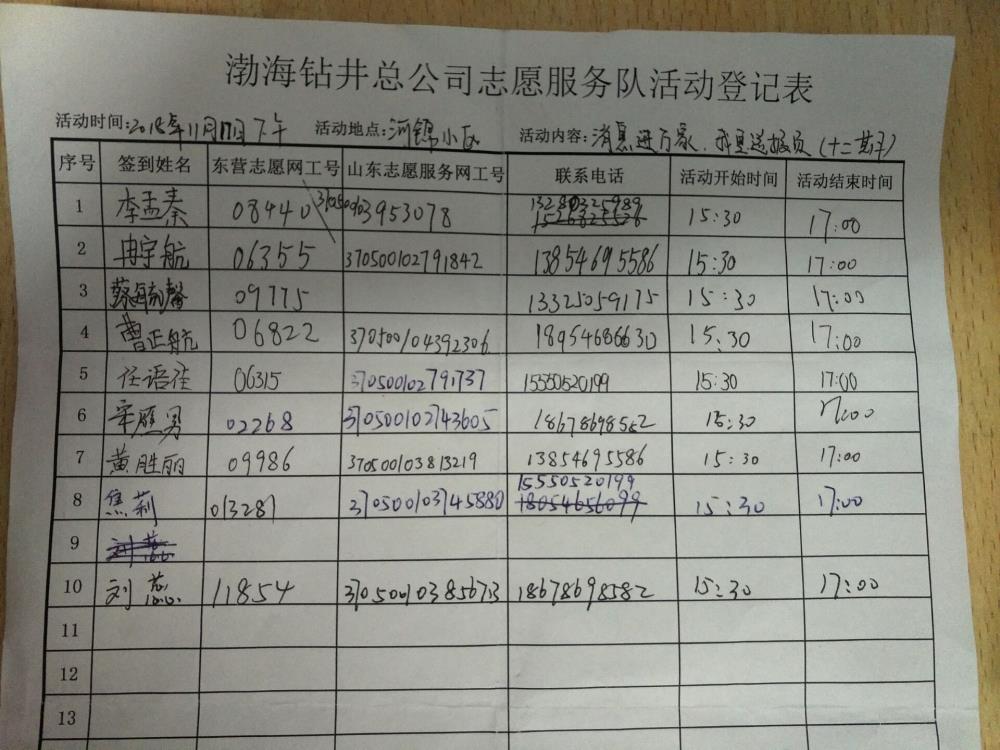 渤海钻井总公司志愿服务队活动登记表
活动时间:2018年11月17日下午 活动地点:河锦小区 活动内容:消息进万家,我是送报员(十二期)
序号 签到姓名 东营志愿网工号 山东志愿服务网工号 联系电话 活动开始时间 活动结束时间
1 李孟秦 08440 370500103953078 13280325989 15:30 17:00
2 冉宇航 06355 370500102791842 13854695586 15:30 17:00
3 蔡毓馨 09775 13325059175 15:30 17:00
4 曹正航 06822 370500104392306 18954686630 15:30 17:00
5 任语佳 06315 370500102791737 15550520199 15:30 17:00
6 辛胜男 02268 370500102743605 18678698582 15:30 17:00
7 黄胜丽 09986 370500103813219 13854695586 15:30 17:00
8 焦莉 013281 370500103745880 15550520199 15:30 17:00
9
10 刘蕊 11854 370500103856713 18678698582 15:30 17:00
11
12
13